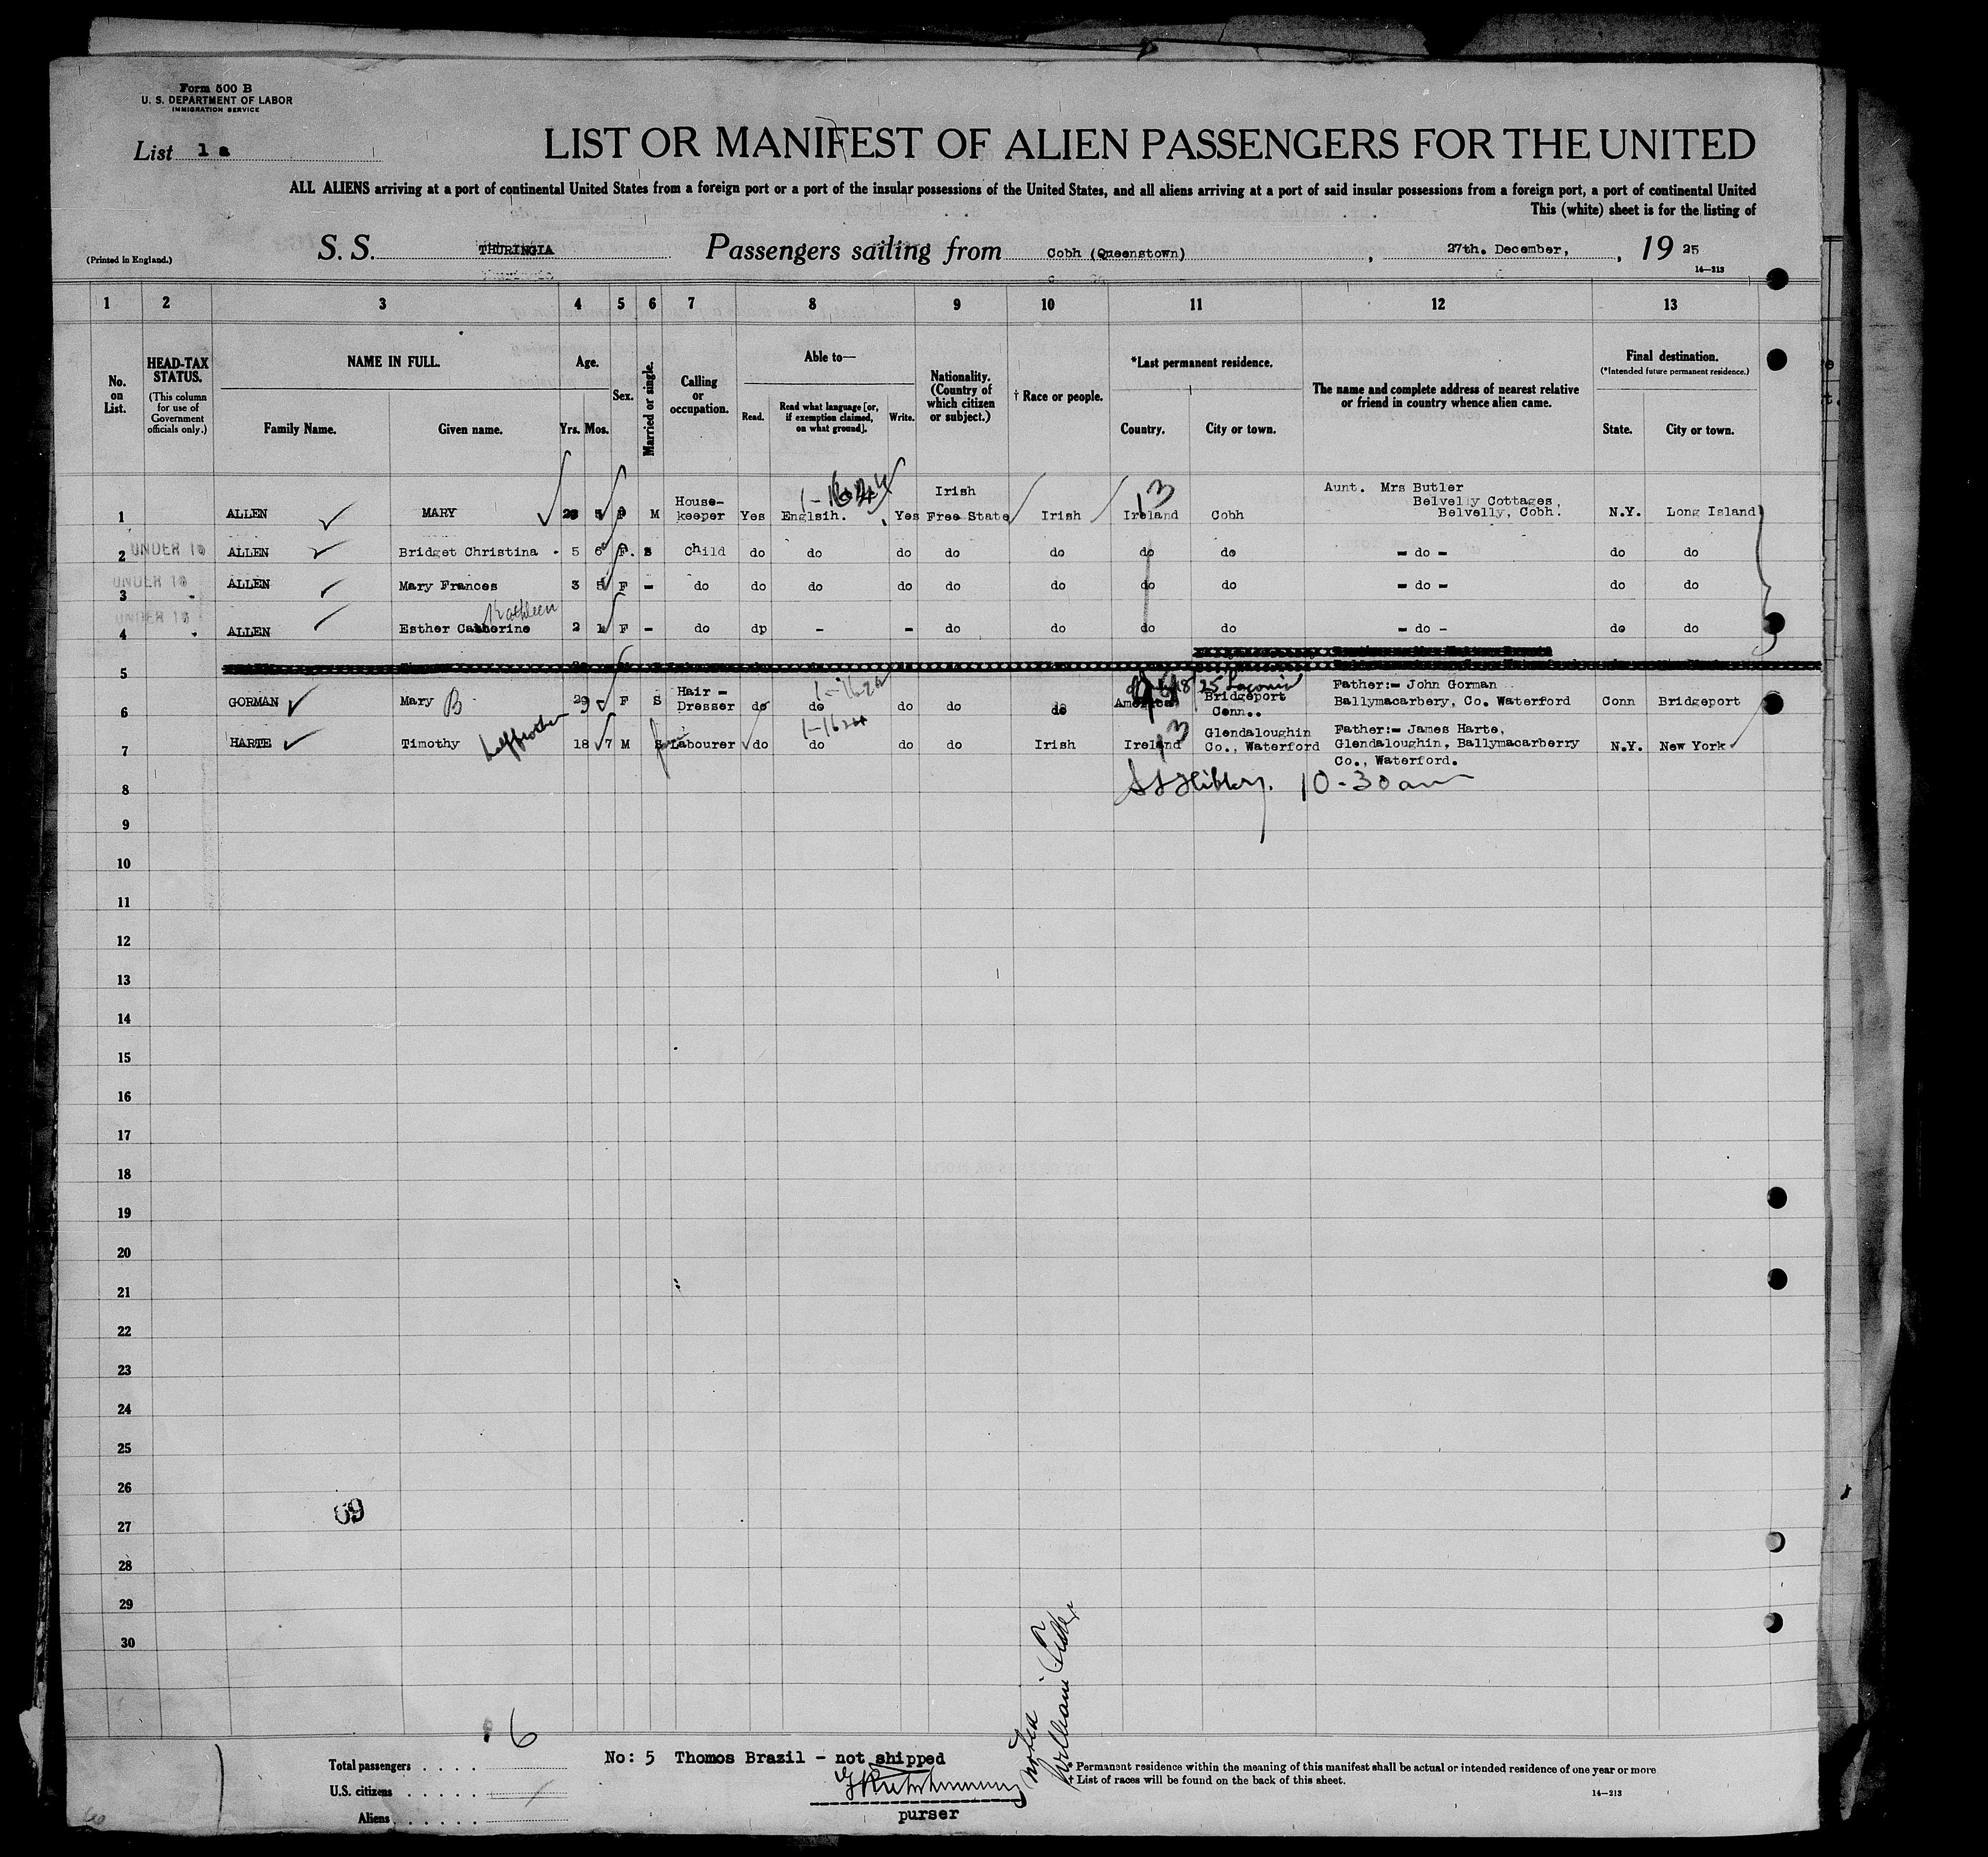 Form 500 B
U. S. DEPARTMENT OF LABOR
IMMIGRATION SERVICE
List 1 a
LIST OR MANIFEST OF ALIEN PASSENGERS FOR THE UNITED
ALL ALIENS arriving at a port of continental United States from a foreign port or a port of the insular possessions of the United States, and all aliens arriving at a port of said insular possessions from a foreign port, a port of continental United
This (white) sheet is for the listing of
(Printed in England.)
S. S. THURINGIA Passengers sailing from Cobh (Queenstown), 27th. December, 19 25
14—213
1 2 3 4 5 6 7 8 9 10 11 12 13
No. on List.
HEAD-TAX STATUS.
(This column for use of Government officials only.)
NAME IN FULL.
Family Name. Given name.
Age.
Yrs. Mos.
Sex.
Married or single.
Calling or occupation.
Able to—
Read. Read what language [or, if exemption claimed, on what ground]. Write.
Nationality. (Country of which citizen or subject.)
† Race or people.
*Last permanent residence.
Country. City or town.
The name and complete address of nearest relative or friend in country whence alien came.
Final destination.
(*Intended future permanent residence.)
State. City or town.
1 ALLEN MARY 5 F M House-keeper Yes Englsih. Yes Irish Free State Irish Ireland 13 Cobh Aunt. Mrs Butler Belvelly Cottages, Belvelly, Cobh. N.Y. Long Island
2 UNDER 16 ALLEN Bridget Christina 5 6 F. S Child do do do do do do do - do - do do
3 UNDER 16 ALLEN Mary Frances 3 5 F - do do do do do do do do - do - do do
4 UNDER 16 ALLEN Esther Catherine Kathleen 2 1 F - do dp - - do do do do - do - do do
5
6 GORMAN Mary B 29 F S Hair-Dresser do do 1-1624 do do do America Bridgeport Conn.. Father:- John Gorman Ballymacarbery, Co. Waterford Conn Bridgeport
7 HARTE Timothy half brother 18 7 M S Labourer do do 1-1624 do do Irish Ireland 13 Glendaloughin Co., Waterford Father:- James Harte, Glendaloughin, Ballymacarberry Co., Waterford. N.Y. New York
8 10-30 am
9
10
11
12
13
14
15
16
17
18
19
20
21
22
23
24
25
26
27
69
28
29
30
6
Total passengers
U.S. citizens
Aliens
No: 5 Thomos Brazil - not shipped
purser
William
* Permanent residence within the meaning of this manifest shall be actual or intended residence of one year or more
† List of races will be found on the back of this sheet.
14—213